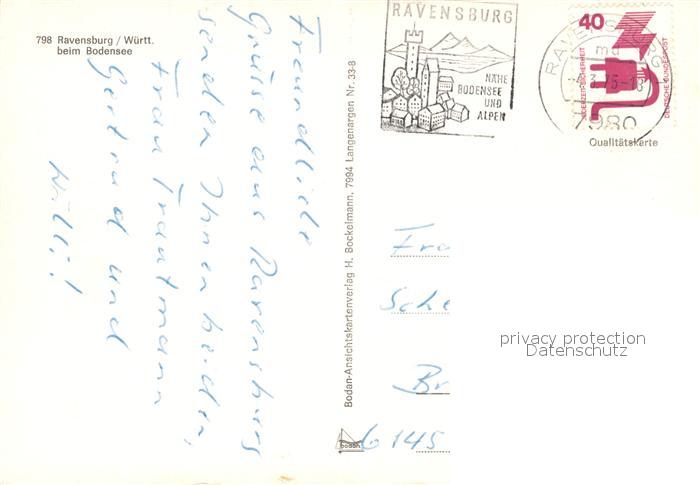 798 Ravensburg / Württ.
beim Bodensee
Freundliche
Grüsse aus Ravensburg
senden Ihnen beiden,
Frau Trautmann
Gertrud und
Willi!
Bodan-Ansichtskartenverlag H. Bockelmann, 7994 Langenargen Nr. 33-8
bodan
RAVENSBURG
NÄHE
BODENSEE
UND
ALPEN
RAVENSBURG
md
7980
40
JEDERZEIT SICHERHEIT
DEUTSCHE BUNDESPOST
Qualitätskarte
Fra
Sche
Br
6145
privacy protection
Datenschutz